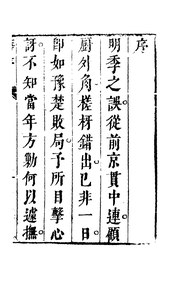 序
明季之誤從前京貫中連顧
厨外角槎枒錯出已非一日
卽如豫楚敗局予所目擊心
訝不知當年方勦何以遽撫